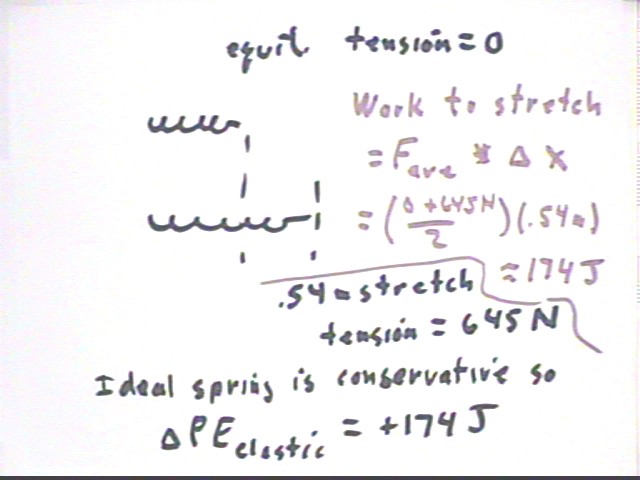 equil. tension = 0
Work to stretch
= Fave * Δ x
= (0 + 645N / 2) (.54 m)
= 174 J
.54 m stretch
tension = 645 N
Ideal spring is conservative so
Δ PE elastic = +174 J